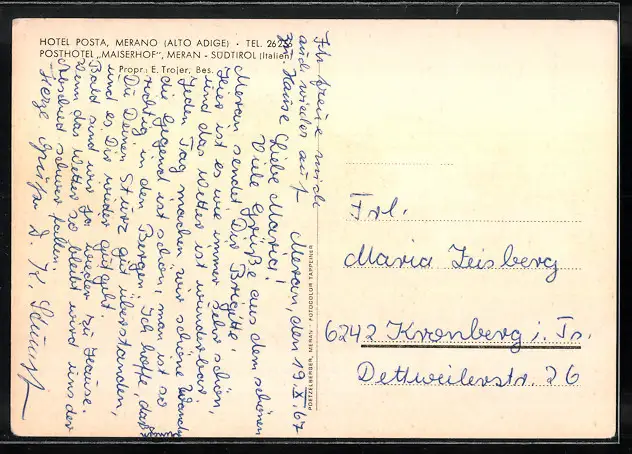 HOTEL POSTA, MERANO (ALTO ADIGE) • TEL. 262
POSTHOTEL „MAISERHOF“, MERAN - SÜDTIROL (Italien)
Propr.: E. Trojer, Bes.
Meran, den 19. X. 67
Liebe Maria!
Viele Grüße aus dem schönen
Meran sendet Dir Brigitte.
Hier ist es wie immer sehr schön
und das Wetter ist wunderbar.
Jeden Tag machen wir schöne
die Gegend ist schön, man ist so
richtig in den Bergen. Ich hoffe, daß
Du Deinen Sturz gut überstanden,
und es Dir wieder gut geht.
Bald sind wir ja wieder zu Hause.
Wenn das Wetter so bleibt wird uns der
Abschied schwer fallen.
Herzl. Grüße
Ich freue mich
auch wieder auf
zu Hause
POETZELBERGER, MERAN - FOTOCOLOR TAPPEINER
Frl.
Maria Zeisberg
6242 Kronberg i. Ts.
Dettweilerstr. 26